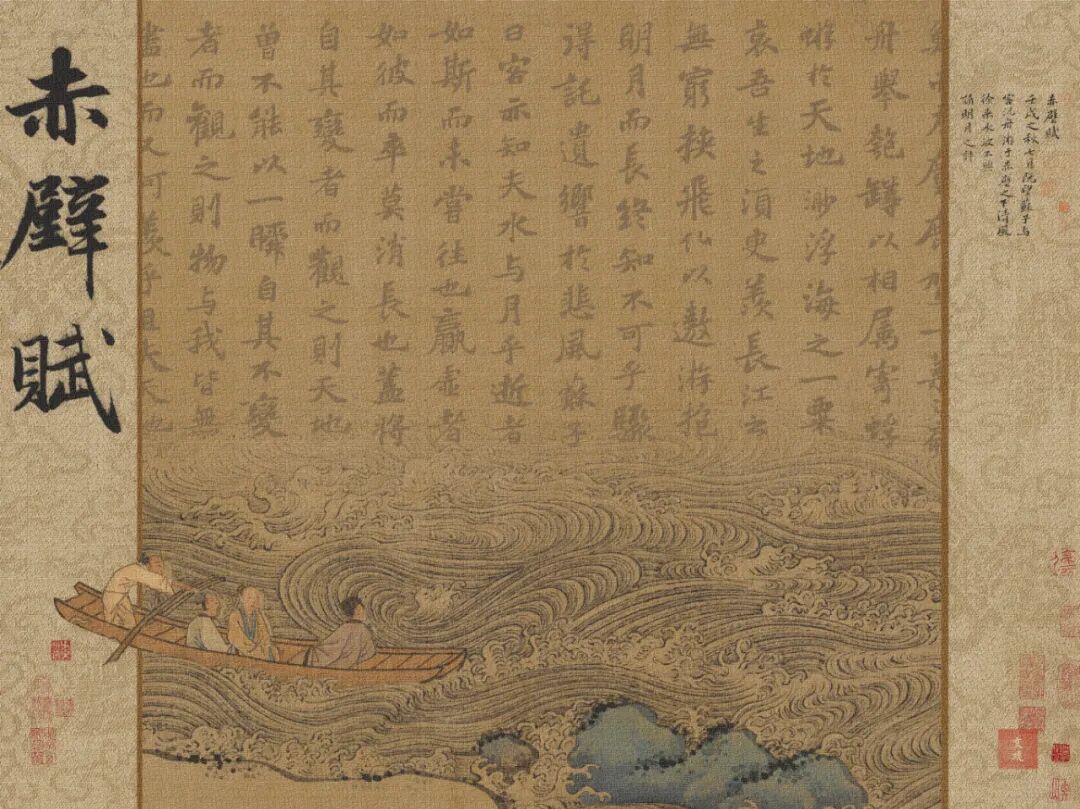 赤壁賦
壬戌之秋七月既望蘇子与
客泛舟游于赤壁之下清風
徐来水波不興
誦明月之詩
舟舉匏罇以相屬寄蜉
蝣於天地渺浮海之一粟
哀吾生之須臾羨長江之
無窮挾飛仙以遨游抱
明月而長終知不可乎驟
得託遺響於悲風蘇子
曰客亦知夫水与月乎逝者
如斯而未嘗往也贏虚者
如彼而卒莫消長也蓋將
自其變者而觀之則天地
曾不能以一瞬自其不變
者而觀之則物与我皆無
盡也而又可羨乎且夫天
赤壁賦